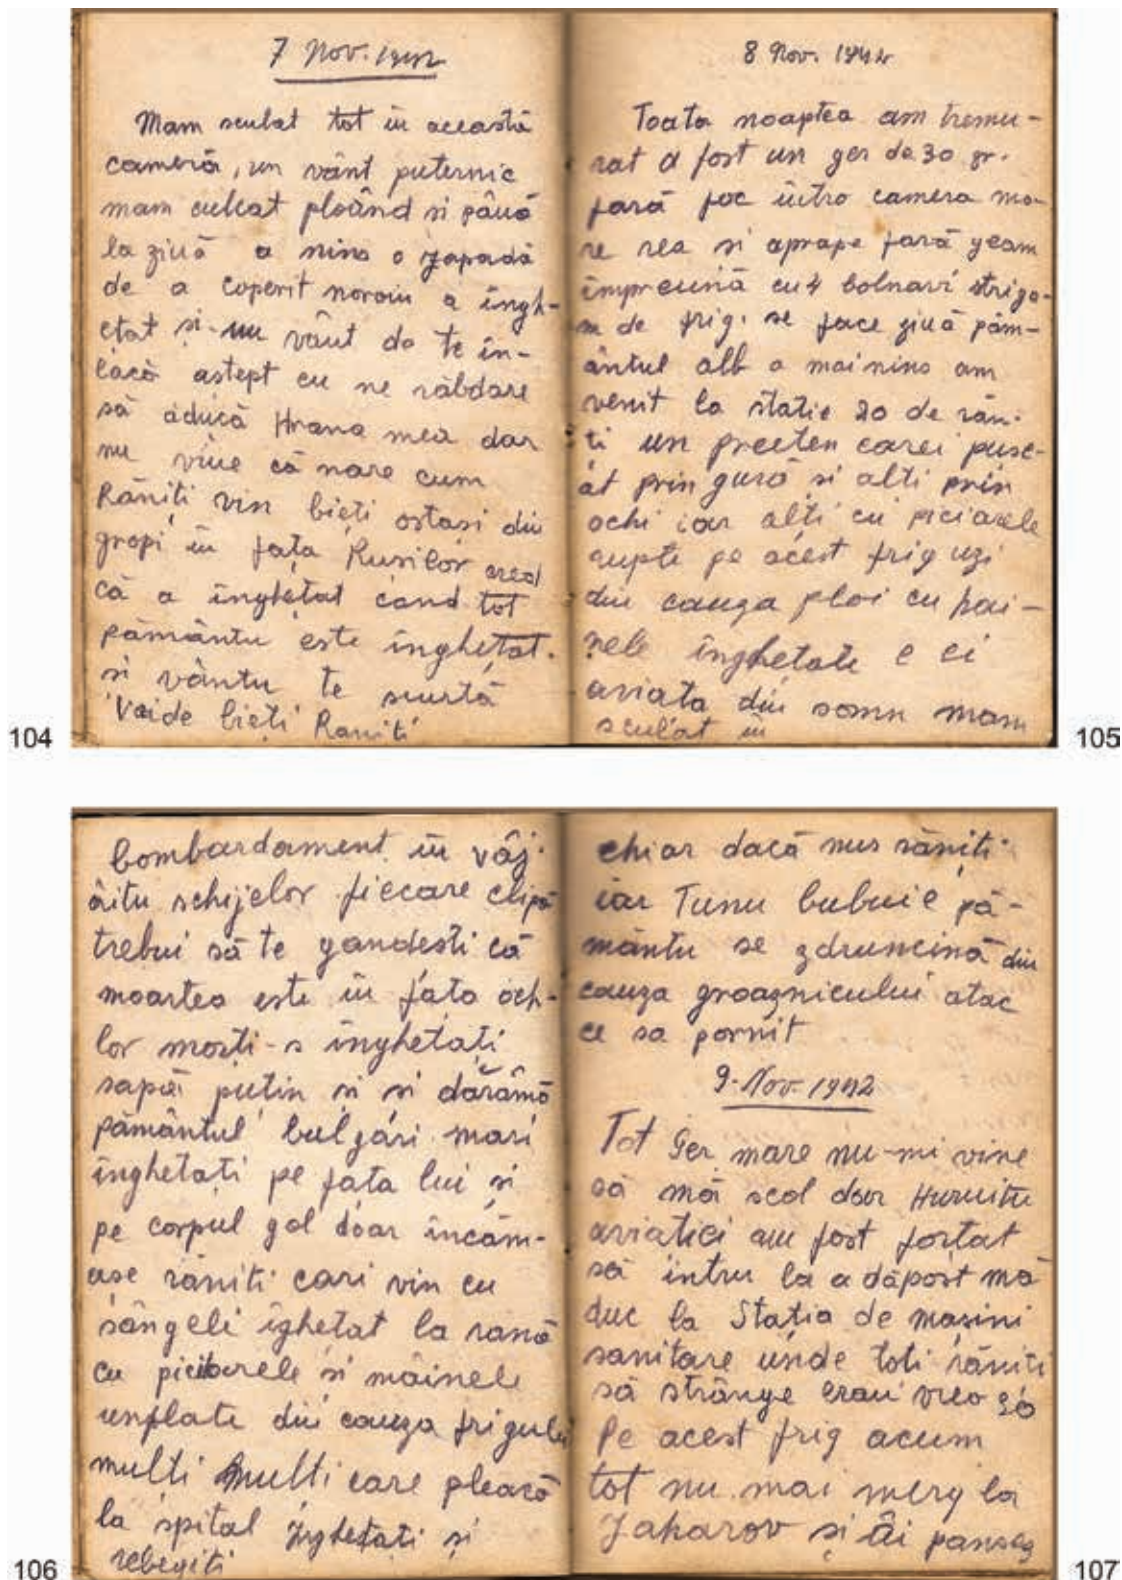 7 Nov. 1942
Mam sculat tot în această
cameră, un vânt puternic
mam culcat ploând si până
la ziuă a nins o zapadă
de a coperit noroiu a îngh-
etat si un vânt de te în-
eacă astept cu ne răbdare
să aducă Hrana mea dar
nu vine că nare cum
Răniți vin bieți ostasi din
gropi în fața Rusilor cred
că a înghețat cand tot
pământu este înghețat.
si vântu te scurtă
Vai de bieți Raniti
104
8 Nov. 1942
Toata noaptea am tremu-
rat a fost un ger de 30 gr.
fară foc întro camera ma-
re rea si aprape fară geam
împreună cu 4 bolnavi striga-
m de frig. se face ziuă păm-
ântul alb a mai nins am
venit la statie 20 de răni-
ti un preeten carei pusc-
at prin gură si alti prin
ochi iar alti cu piciarele
rupte pe acest frig uzi
din cauza ploi cu hai-
nele înghetate e ei
aviata din somn mam
sculat in
105
bombardament în vâj-
âitu schijelor fiecare clipă
trebui să te gandesti că
moartea este în fața och-
lor morti-s înghețați
sapă puțin si si dărâmă
pământul bulgări mari
înghetati pe fata lui si
pe corpul gol doar încăm-
ase răniti cari vin cu
sângeli îghetat la rană
cu picioarele si mâinele
unflate din cauza frigului
multi multi care pleacă
la spital Îngheţati si
rebegiti
106
chiar dacă nus răniti
iar Tunu bubuie pă-
mântu se zdruncină din
cauza groaznicului atac
ce sa pornit
9. Nov. 1942
Tot Ger mare nu-mi vine
să mă scol doar Huruitu
aviatiei am fost fortat
să intru la adăpost mă
duc la Stația de mașini
sanitare unde toti răniti
să strânge erau vreo 30
Pe acest frig acum
tot nu mai merg la
Zaharov și âi pansez
107